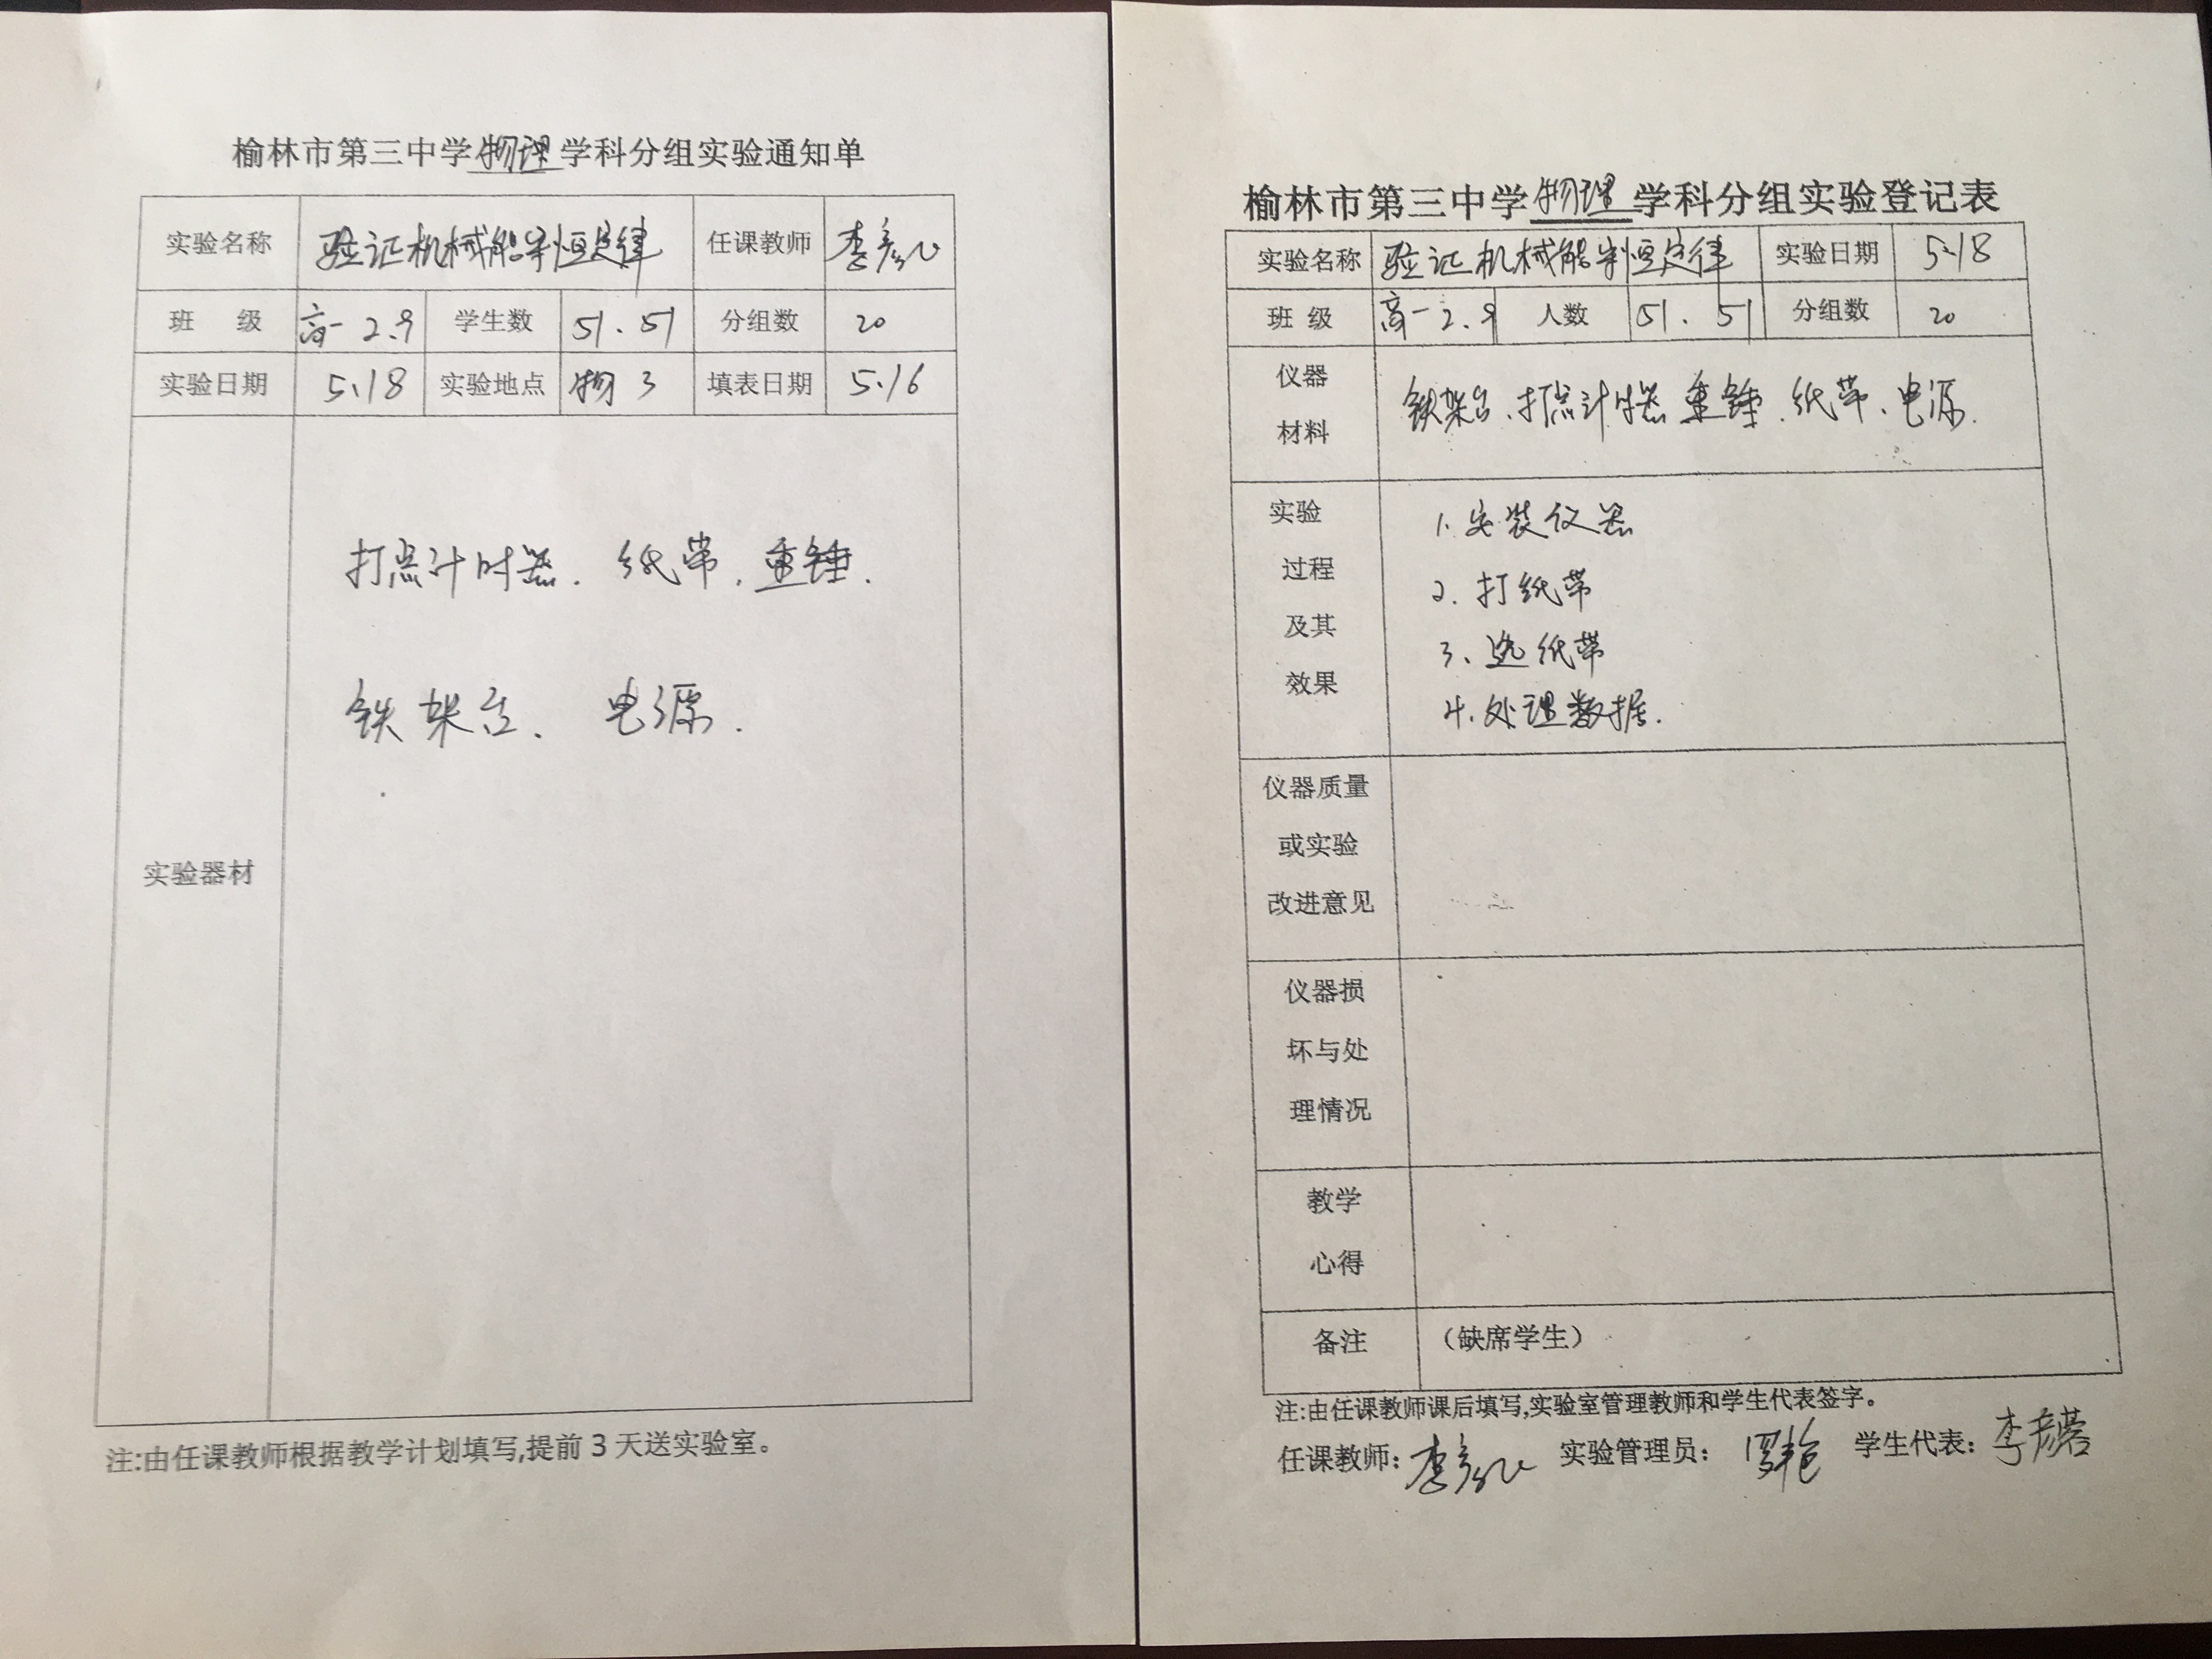 榆林市第三中学物理学科分组实验通知单
实验名称 验证机械能守恒定律 任课教师 李彦
班 级 高一 2.9 学生数 51.51 分组数 20
实验日期 5.18 实验地点 物3 填表日期 5.16
实验器材
打点计时器. 纸带. 重锤.
铁架台. 电源.
注:由任课教师根据教学计划填写,提前3天送实验室。
榆林市第三中学物理学科分组实验登记表
实验名称 验证机械能守恒定律 实验日期 5.18
班 级 高一 2.9 人数 51.51 分组数 20
仪器
材料
铁架台、打点计时器 重锤.纸带、电源.
实验
过程
及其
效果
1.安装仪器
2.打纸带
3、选纸带
4.处理数据.
仪器质量
或实验
改进意见
仪器损
坏与处
理情况
教学
心得
备注 (缺席学生)
注:由任课教师课后填写,实验室管理教师和学生代表签字。
任课教师: 李彦 实验管理员: 罗艳 学生代表: 李彦蓉